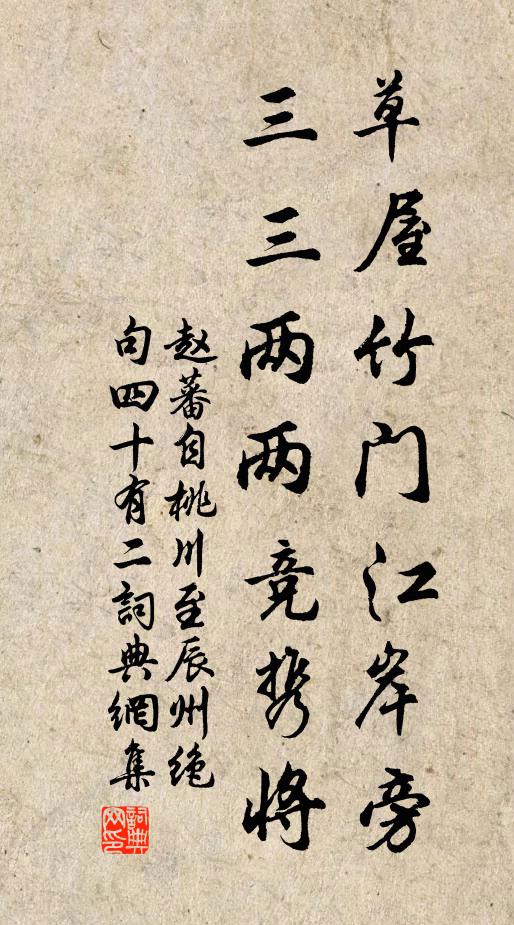 草屋竹门江岸旁
三三两两竞携将
赵蕃自桃川至辰州绝
句四十有二詞典網集
詞典网印